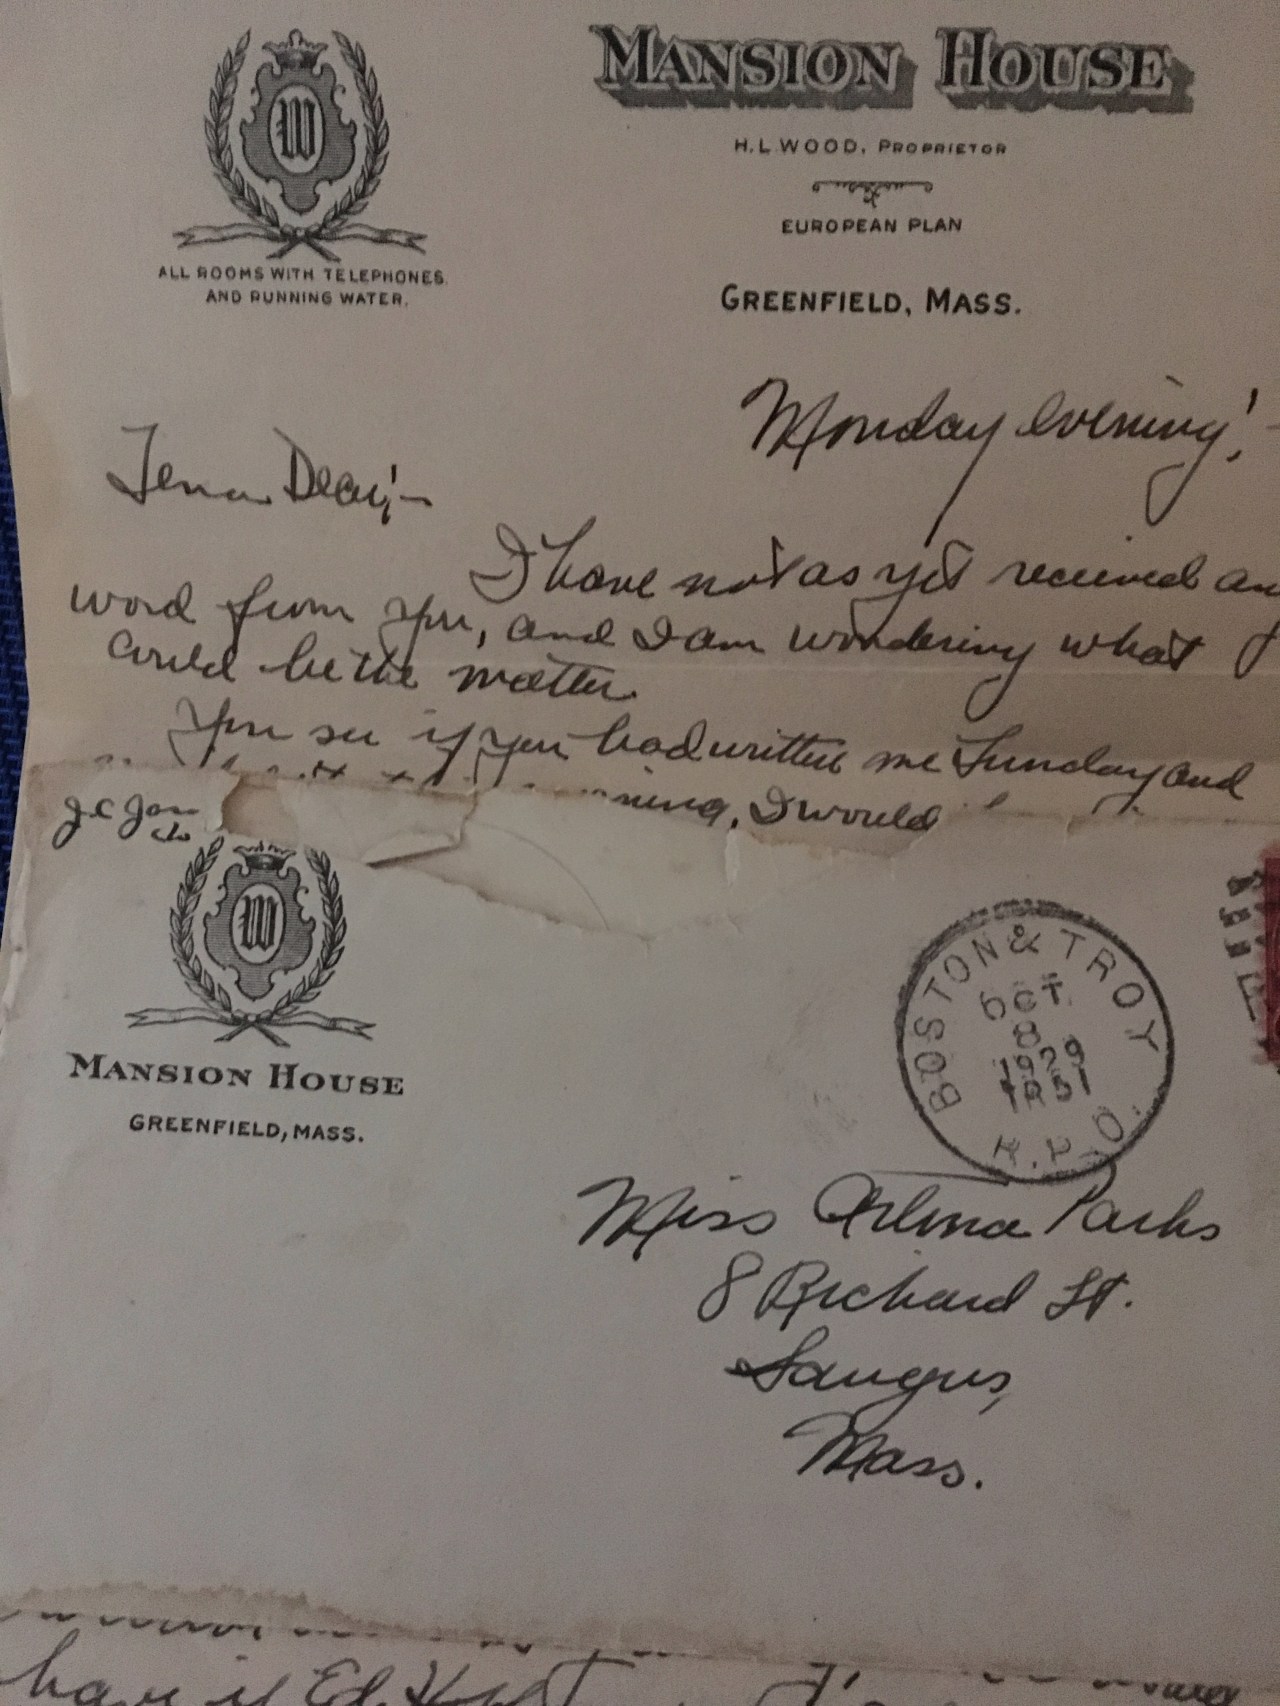 MANSION HOUSE
H. L. WOOD, PROPRIETOR
EUROPEAN PLAN
GREENFIELD, MASS.
W
ALL ROOMS WITH TELEPHONES
AND RUNNING WATER.
Monday evening!-
Tena Dear;-
I have not as yet received any
word from you, and I am wondering what
could be the matter
You see if you had written me Sunday and
I would
W
MANSION HOUSE
GREENFIELD, MASS.
BOSTON & TROY
OCT
R.P.O.
Miss Arlena Parks
8 Richard St.
Saugus,
Mass.
have if Ed